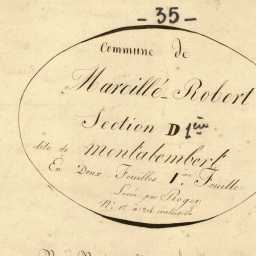 - 35 -
Commune de
Marcillé-Robert
Section D 1ère
dite de Montalembert
En Deux Feuilles 1ère Feuille
Levée par Roger